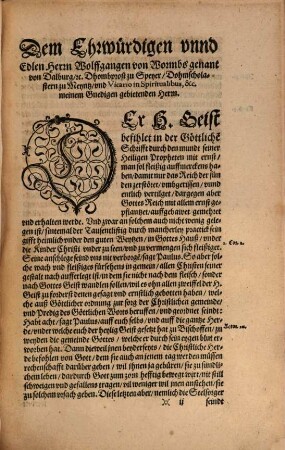 Dem Ehrwürdigen vnnd
Edlen Herrn Wolffgangen von Wormbs genant
von Dalburg/ꝛc. Dhombprost zu Speyer/ Dohmschola-
stern zu Meyntz/ vnd Vicario in Spiritualibus, &c.
meinem Gnedigen gebietenden Herrn.
DEr H. Geist
befihlet in der Göttliche
Schrifft durch den munde seiner
Heiliger Propheten mit ernst/
man sol fleissig auffmerckens ha-
ben/ damit nur das Reich der sün
den zerstöret/ vmbgerissen/ vnnd
endlich vertilget/ dargegen aber
Gottes Reich mit allem ernst ge-
pflantzet/ auffgebawet gemehret
vnd erhalten werde. Vnd zwar an solchem auch nicht wenig gele-
gen ist/ sintemal der Tausentlistig durch mancherley practick sein
gifft heimlich vnder den guten Weytzen/ in Gottes Hauß/ vnder
die Kinder Christi vnder zu seen/ vnd zu vermengen sich fleissiget.
Seine anschlege seind vns nit verborgē/ sagt Paulus. So aber sol-
che wach vnd fleissiges fürsehens in gemein/ allen Christen seiner
gestalt nach aufferlegt ist/ in dem sie nicht nach dem fleisch/ sonder
nach Gottes Geist wandlen sollen/ wil es ohn allen zweiffel der H.
Geist zu forderst denen gesagt vnd ernstlich gebotten haben/ wel-
che auß Göttlicher ordnung zur sorg der Christlichen gemeinde/
vnd Predig des Göttlichen Worts beruffen/ vnd geordnet seind:
Habt acht/ sagt Paulus/ auff euch selbs/ vnd auff die gantze Her-
de/ vnder welche euch der heylig Geist gesetzt hat zu Bischoffen/ zu
weyden die gemeinde Gottes/ welcher er durch sein eygen blut er-
worben hat. Dann dieweil jnen
befohlen von Gott/ dem sie auch an jenem tag wer den müssen
rechenschafft darüber geben/ wil jhnen ja gebüren/ sie zu sündli-
chem leben/ dardurch Gott zum zorn hefftig bewegt wirt/ nit still
schweigen vnd gefallens tragen/ vil weniger wil jnen anstehen/ sie
zu solchem vrsach geben. Diese letzten aber/ nemlich die Seelsorger
ij
seindt